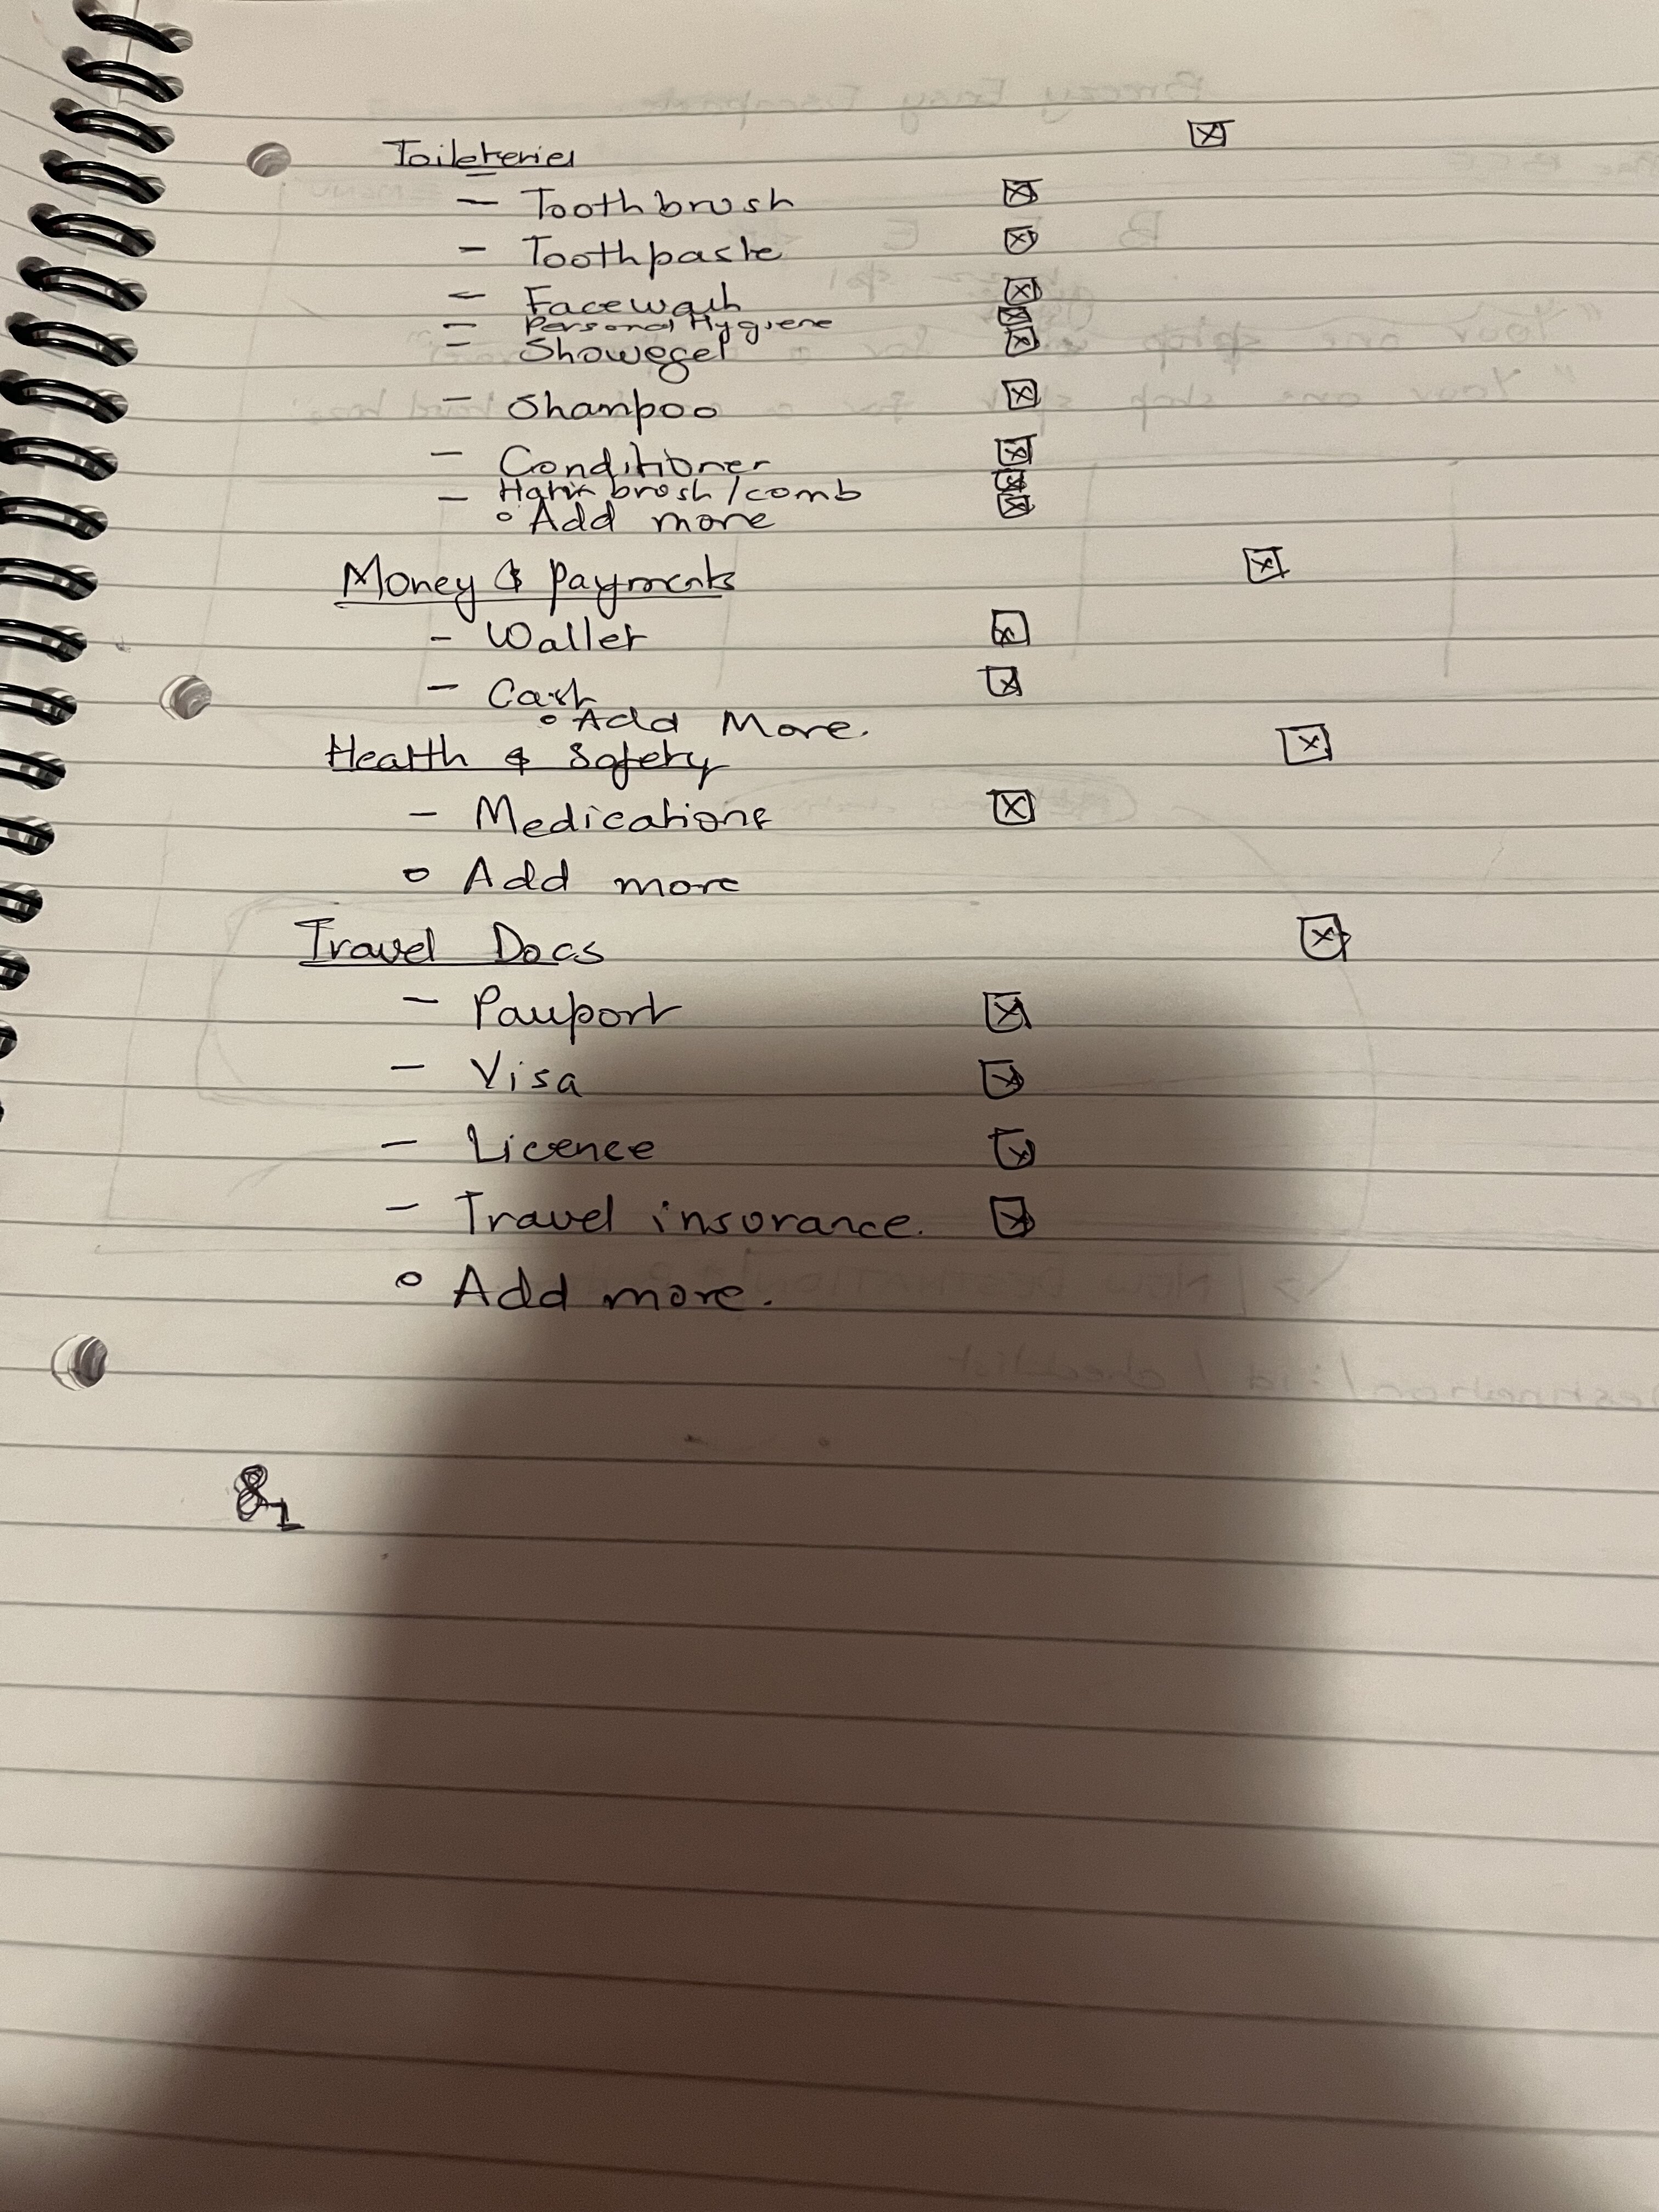 Toileteries ☒
– Toothbrush ☒
– Toothpaste ☒
– Facewash ☒
– Personal Hygiene ☒
– Showegel ☒
– Shampoo ☒
– Conditioner ☒
– brush/comb ☒
° Add more ☒
Money & Payments ☒
- Wallet ☒
– Cash ☒
° Add More.
Health & Safety ☒
– Medications ☒
° Add more
Travel Docs ☒
– Passport ☒
– Visa ☒
– Licence ☒
– Travel insurance. ☒
° Add more.